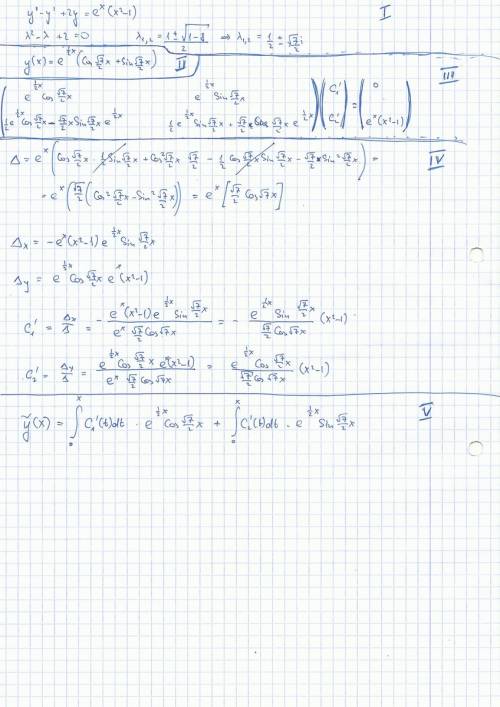 y'' - y' + 2y = e^x (x²-1)
I
λ² - λ + 2 = 0   λ₁,₂ = (1 ± √(1-8))/2 ⇒ λ₁,₂ = 1/2 ± √7/2 i
y(x) = e^(1/2 x) (Cos √7/2 x + Sin √7/2 x)
II
III
( e^(1/2 x) Cos √7/2 x   e^(1/2 x) Sin √7/2 x ) ( C₁' ) = ( 0 )
( 1/2 e^(1/2 x) Cos √7/2 x - √7/2 x Sin √7/2 x e^(1/2 x)   1/2 e^(1/2 x) Sin √7/2 x + √7/2 x Cos √7/2 x e^(1/2 x) ) ( C₂' ) = ( e^x (x²-1) )
IV
Δ = e^x ( Cos √7/2 x · 1/2 Sin √7/2 x + Cos² √7/2 x √7/2 - 1/2 Cos √7/2 x Sin √7/2 x - √7/2 x Sin² √7/2 x ) =
= e^x ( √7/2 ( Cos² √7/2 x - Sin² √7/2 x ) ) = e^x [ √7/2 Cos √7 x ]
Δx = - e^x (x²-1) e^(1/2 x) Sin √7/2 x
Δy = e^(1/2 x) Cos √7/2 x e^x (x²-1)
C₁' = Δx/Δ = - (e^x (x²-1) e^(1/2 x) Sin √7/2 x)/(e^x √7/2 Cos √7 x) = - (e^(1/2 x) Sin √7/2 x)/(√7/2 Cos √7 x) (x²-1)
C₂' = Δy/Δ = (e^(1/2 x) Cos √7/2 x e^x (x²-1))/(e^x √7/2 Cos √7 x) = (e^(1/2 x) Cos √7/2 x)/(√7/2 Cos √7 x) (x²-1)
V
ỹ(x) = ∫₀ˣ C₁'(t)dt · e^(1/2 x) Cos √7/2 x + ∫₀ˣ C₂'(t)dt · e^(1/2 x) Sin √7/2 x